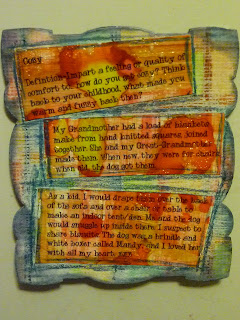 Cozy
Definition-Impart a feeling or quality of
comfort to. how do you get cozy? Think
back to your childhood, what made you
warm and fuzzy back then?
My Grandmother had a load of blankets
make from hand knitted squares joined
together. She and my Great-Grandmother
made them. When new, they were for
when old, the dog got them.
As a kid, I would drape them over the back
of the sofa and over a chair or table to
make an indoor tent/den. Me and the dog
would snuggle up inside there I suspect to
share biscuits. The dog was a brindle and
white boxer called Mandy, and I loved her
with all my heart.